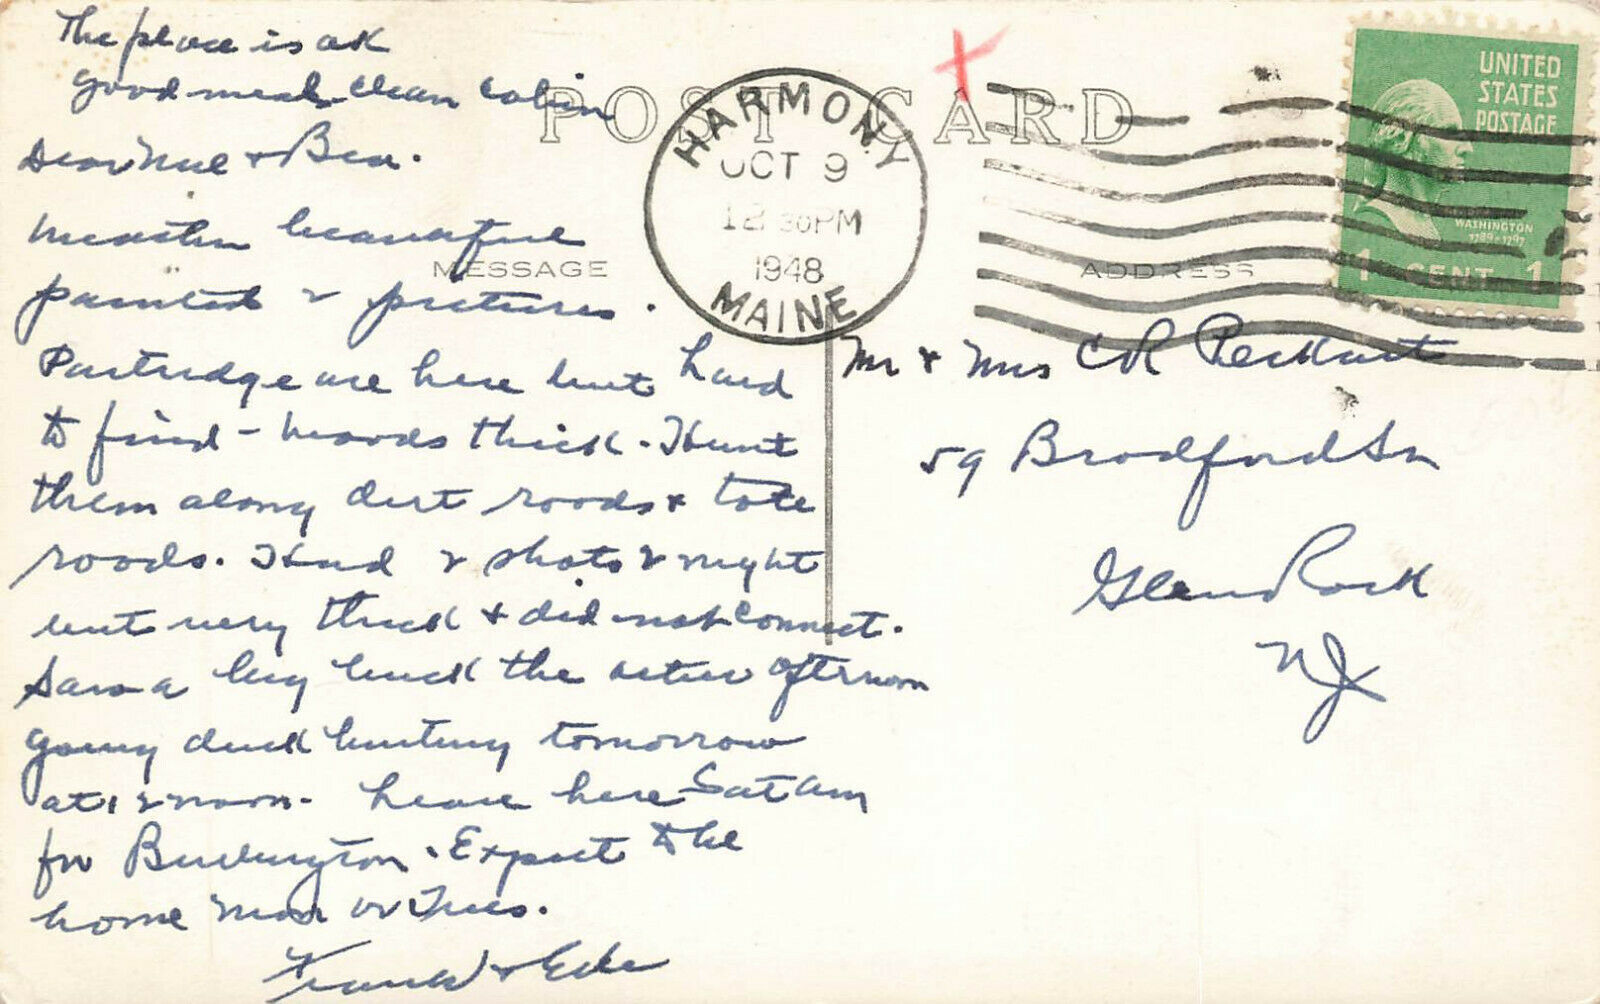 The place is ok
good meals clean cabin
Dear Nel & Bea.
Weather beautiful
painted & pictures.
Partridge are here but hard
to find - woods thick. Hunt
them along dirt roads & tote
roads. Had 2 shots 2 night
but very thick & did not connect.
Saw a big buck the other afternoon
going duck hunting tomorrow
at 12 noon - leave here Sat am
for Burlington. Expect to be
home Mon or Tues.
Frank & Edie
POST CARD
MESSAGE
ADDRESS
HARMONY
OCT 9
12 30 PM
1948
MAINE
UNITED
STATES
POSTAGE
WASHINGTON
1789-1797
1 CENT 1
Mr & Mrs CR Peckart
59 Bradford Sn
Glen Rock
NJ